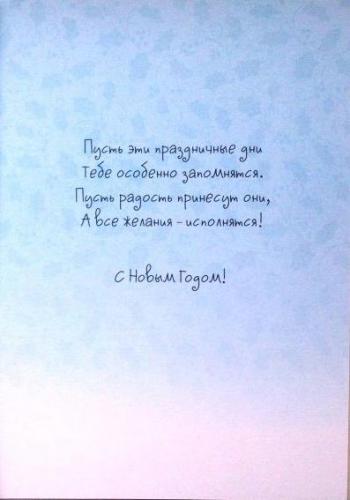 Пусть эти праздничные дни
Тебе особенно запомнятся.
Пусть радость принесут они,
А все желания - исполнятся!
С Новым Годом!